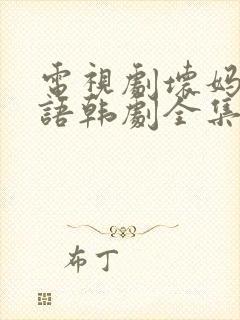 電視劇壞媽
語韩劇全集
布丁